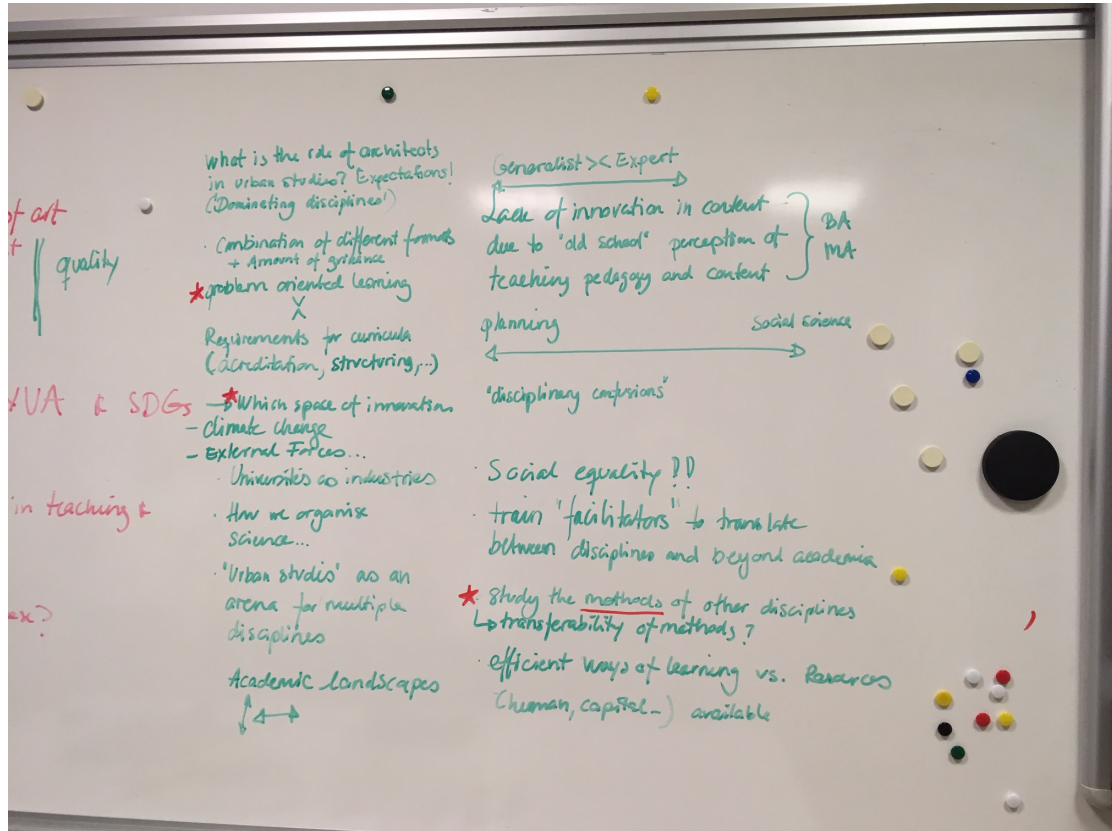 of art
t
quality
VUA & SDGs
in teaching &
ex?
What is the role of architects
in urban studies? Expectations!
('Dominating disciplines')
· Combination of different formats
+ Amount of guidance
* problem oriented learning
Requirements for curricula
(acreditation, structuring,..)
* → Which space of innovation
- climate change
- External Forces...
· Universities as industries
· How we organise
science...
· 'Urban studies' as an
arena for multiple
disciplines
Academic landscapes
Generalist >< Expert
Lack of innovation in content
due to "old school" perception of
teaching pedagogy and content
BA
MA
planning
Social science
"disciplinary confusions"
· Social equality !!
· train "facilitators" to translate
between disciplines and beyond academia
* · Study the methods of other disciplines
↳ transferability of methods?
· efficient ways of learning vs. Resources
(human, capital..) available